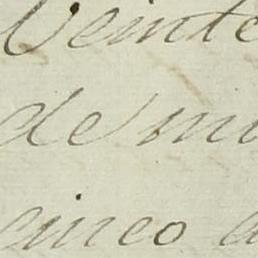 Veinte
de mi
cinco